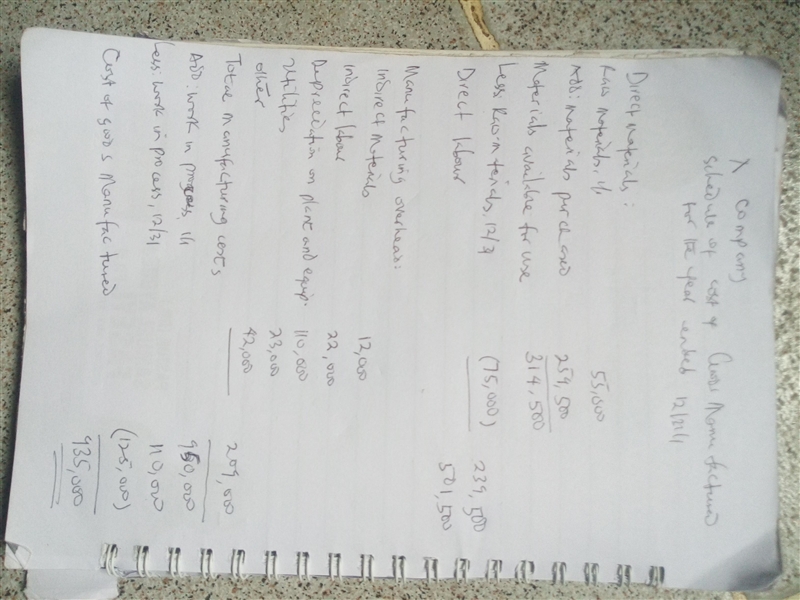 X Company
Schedule of cost of Goods Manufactured
for the year ended 12/31/1
Direct Materials:
Raw materials, 1/1 55,000
Add: materials purchased 259,500
Materials available for use 314,500
Less Raw materials, 12/31 (75,000) 239,500
Direct labour 501,500
Manufacturing overhead:
Indirect Materials 12,000
Indirect labour 22,000
Depreciation on plant and equip. 110,000
Utilities 23,000
other 42,000 209,000
Total manufacturing costs 950,000
Add: work in process, 1/1 110,000
Less: work in process, 12/31 (125,000)
Cost of goods Manufactured 935,000